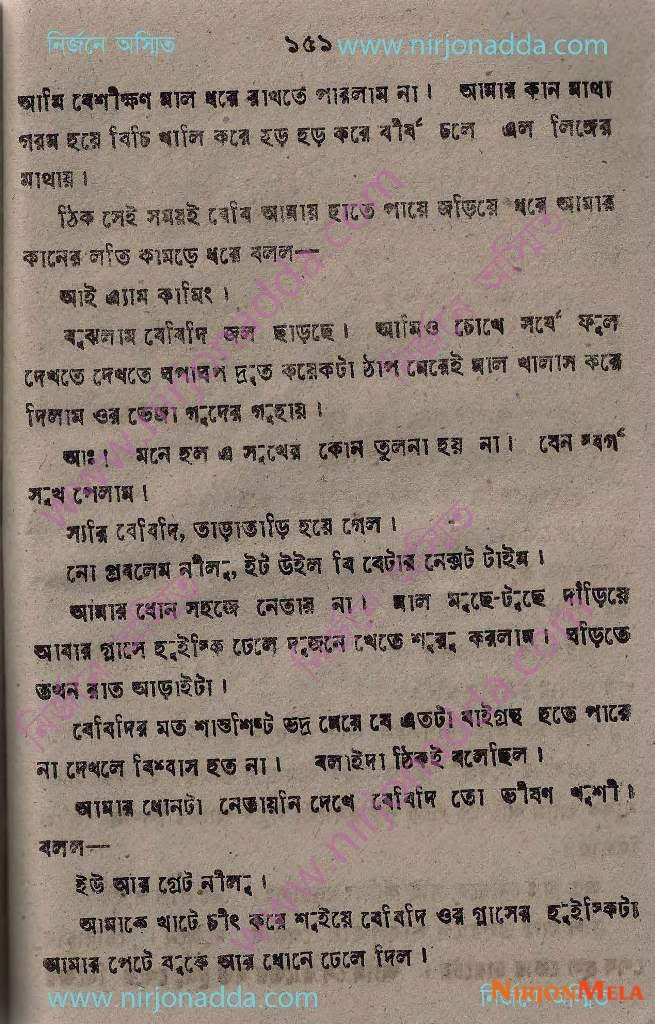 নির্জনে অস্মিত ১৫১ www.nirjonadda.com
আমি বেশীক্ষণ মাল ধরে রাখতে পারলাম না। আমার কান মাথা
গরম হয়ে বিচি খালি করে হড় হড় করে বীর্য চলে এল লিঙ্গের
মাথায়।
ঠিক সেই সময়ই বেবি আমায় হাতে পায়ে জড়িয়ে ধরে আমার
কানের লতি কামড়ে ধরে বলল—
আই এ্যাম কামিং।
বুঝলাম বেবিদি জল ছাড়ছে। আমিও চোখে সর্ষে ফুল
দেখতে দেখতে ঘপাঘপ দ্রুত কয়েকটা ঠাপ মেরেই মাল খালাস করে
দিলাম ওর ভেজা গুদের গুহায়।
আঃ! মনে হল এ সুখের কোন তুলনা হয় না। যেন স্বর্গ
সুখ পেলাম।
স্যরি বেবিদি, তাড়াতাড়ি হয়ে গেল।
নো প্রবলেম নীলু, ইট উইল বি বেটার নেক্সট টাইম।
আমার ধোন সহজে নেতায় না। মাল মুছে-টুছে দাঁড়িয়ে
আবার গ্লাসে হুইস্কি ঢেলে দুজনে খেতে শুরু করলাম। ঘড়িতে
তখন রাত আড়াইটা।
বেবিদির মত শান্তশিষ্ট ভদ্র মেয়ে যে এতটা বাইগ্রস্থ হতে পারে
না দেখলে বিশ্বাস হত না। বলাইদা ঠিকই বলেছিল।
আমার ধোনটা নেতায়নি দেখে বেবিদি তো ভীষণ খুশী।
বলল—
ইউ আর গ্রেট নীলু।
আমাকে খাটে চীৎ করে শুইয়ে বেবিদি ওর গ্লাসের হুইস্কিটা
আমার পেটে বুকে আর ধোনে ঢেলে দিল।
www.nirjonadda.com নির্জনে অস্মিত
NIRJONMELA